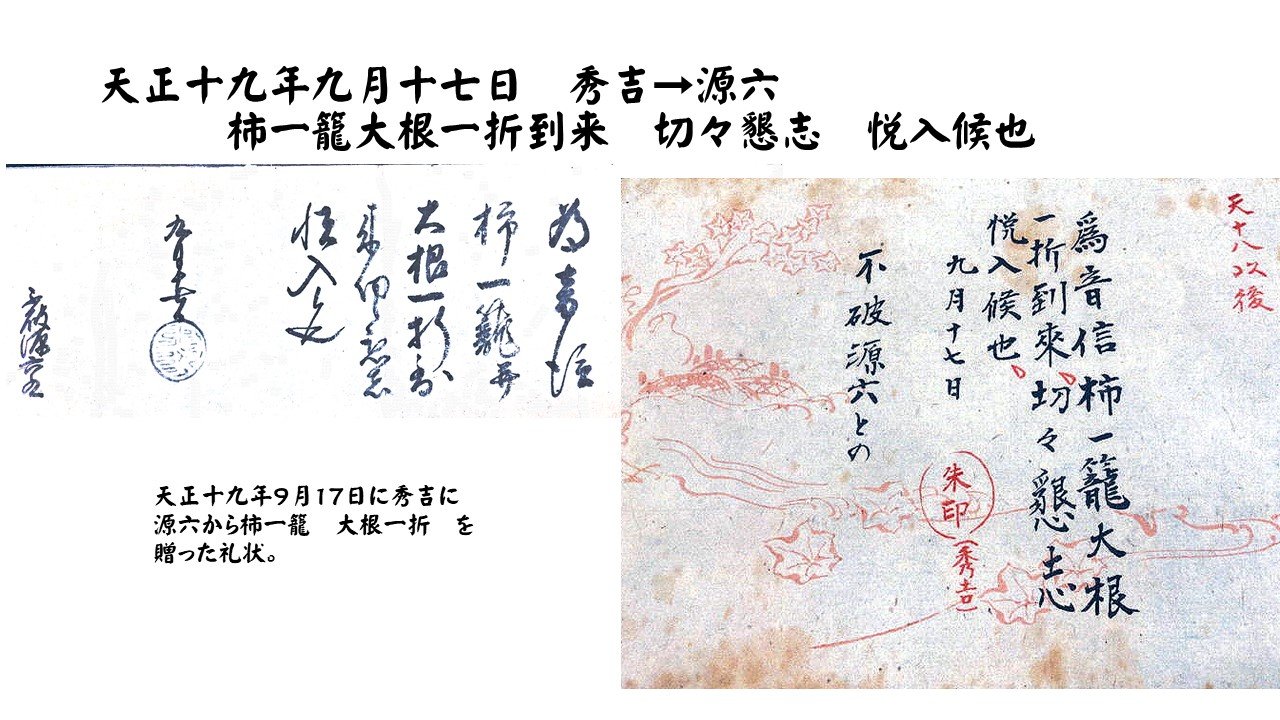 天正十九年九月十七日　秀吉→源六
柿一籠大根一折到来　切々懇志　悦入候也
為音信
柿一籠并
大根一折到
来切々懇志
悦入候也
九月十七日
不破源六
天正十九年9月17日に秀吉に
源六から柿一籠　大根一折　を
贈った礼状。
天十八以後
爲音信柿一籠大根
一折到來切々懇志
悦入候也
九月十七日
朱印
(秀吉)
不破源六との